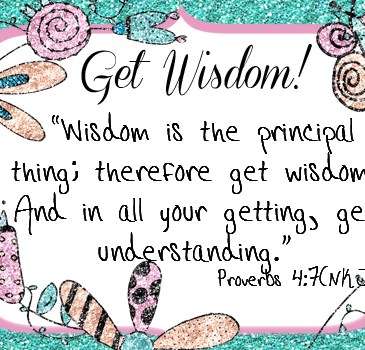 Get Wisdom!
"Wisdom is the principal
thing; therefore get wisdom
And in all your getting, ge
understanding."
Proverbs 4:7(NKJ